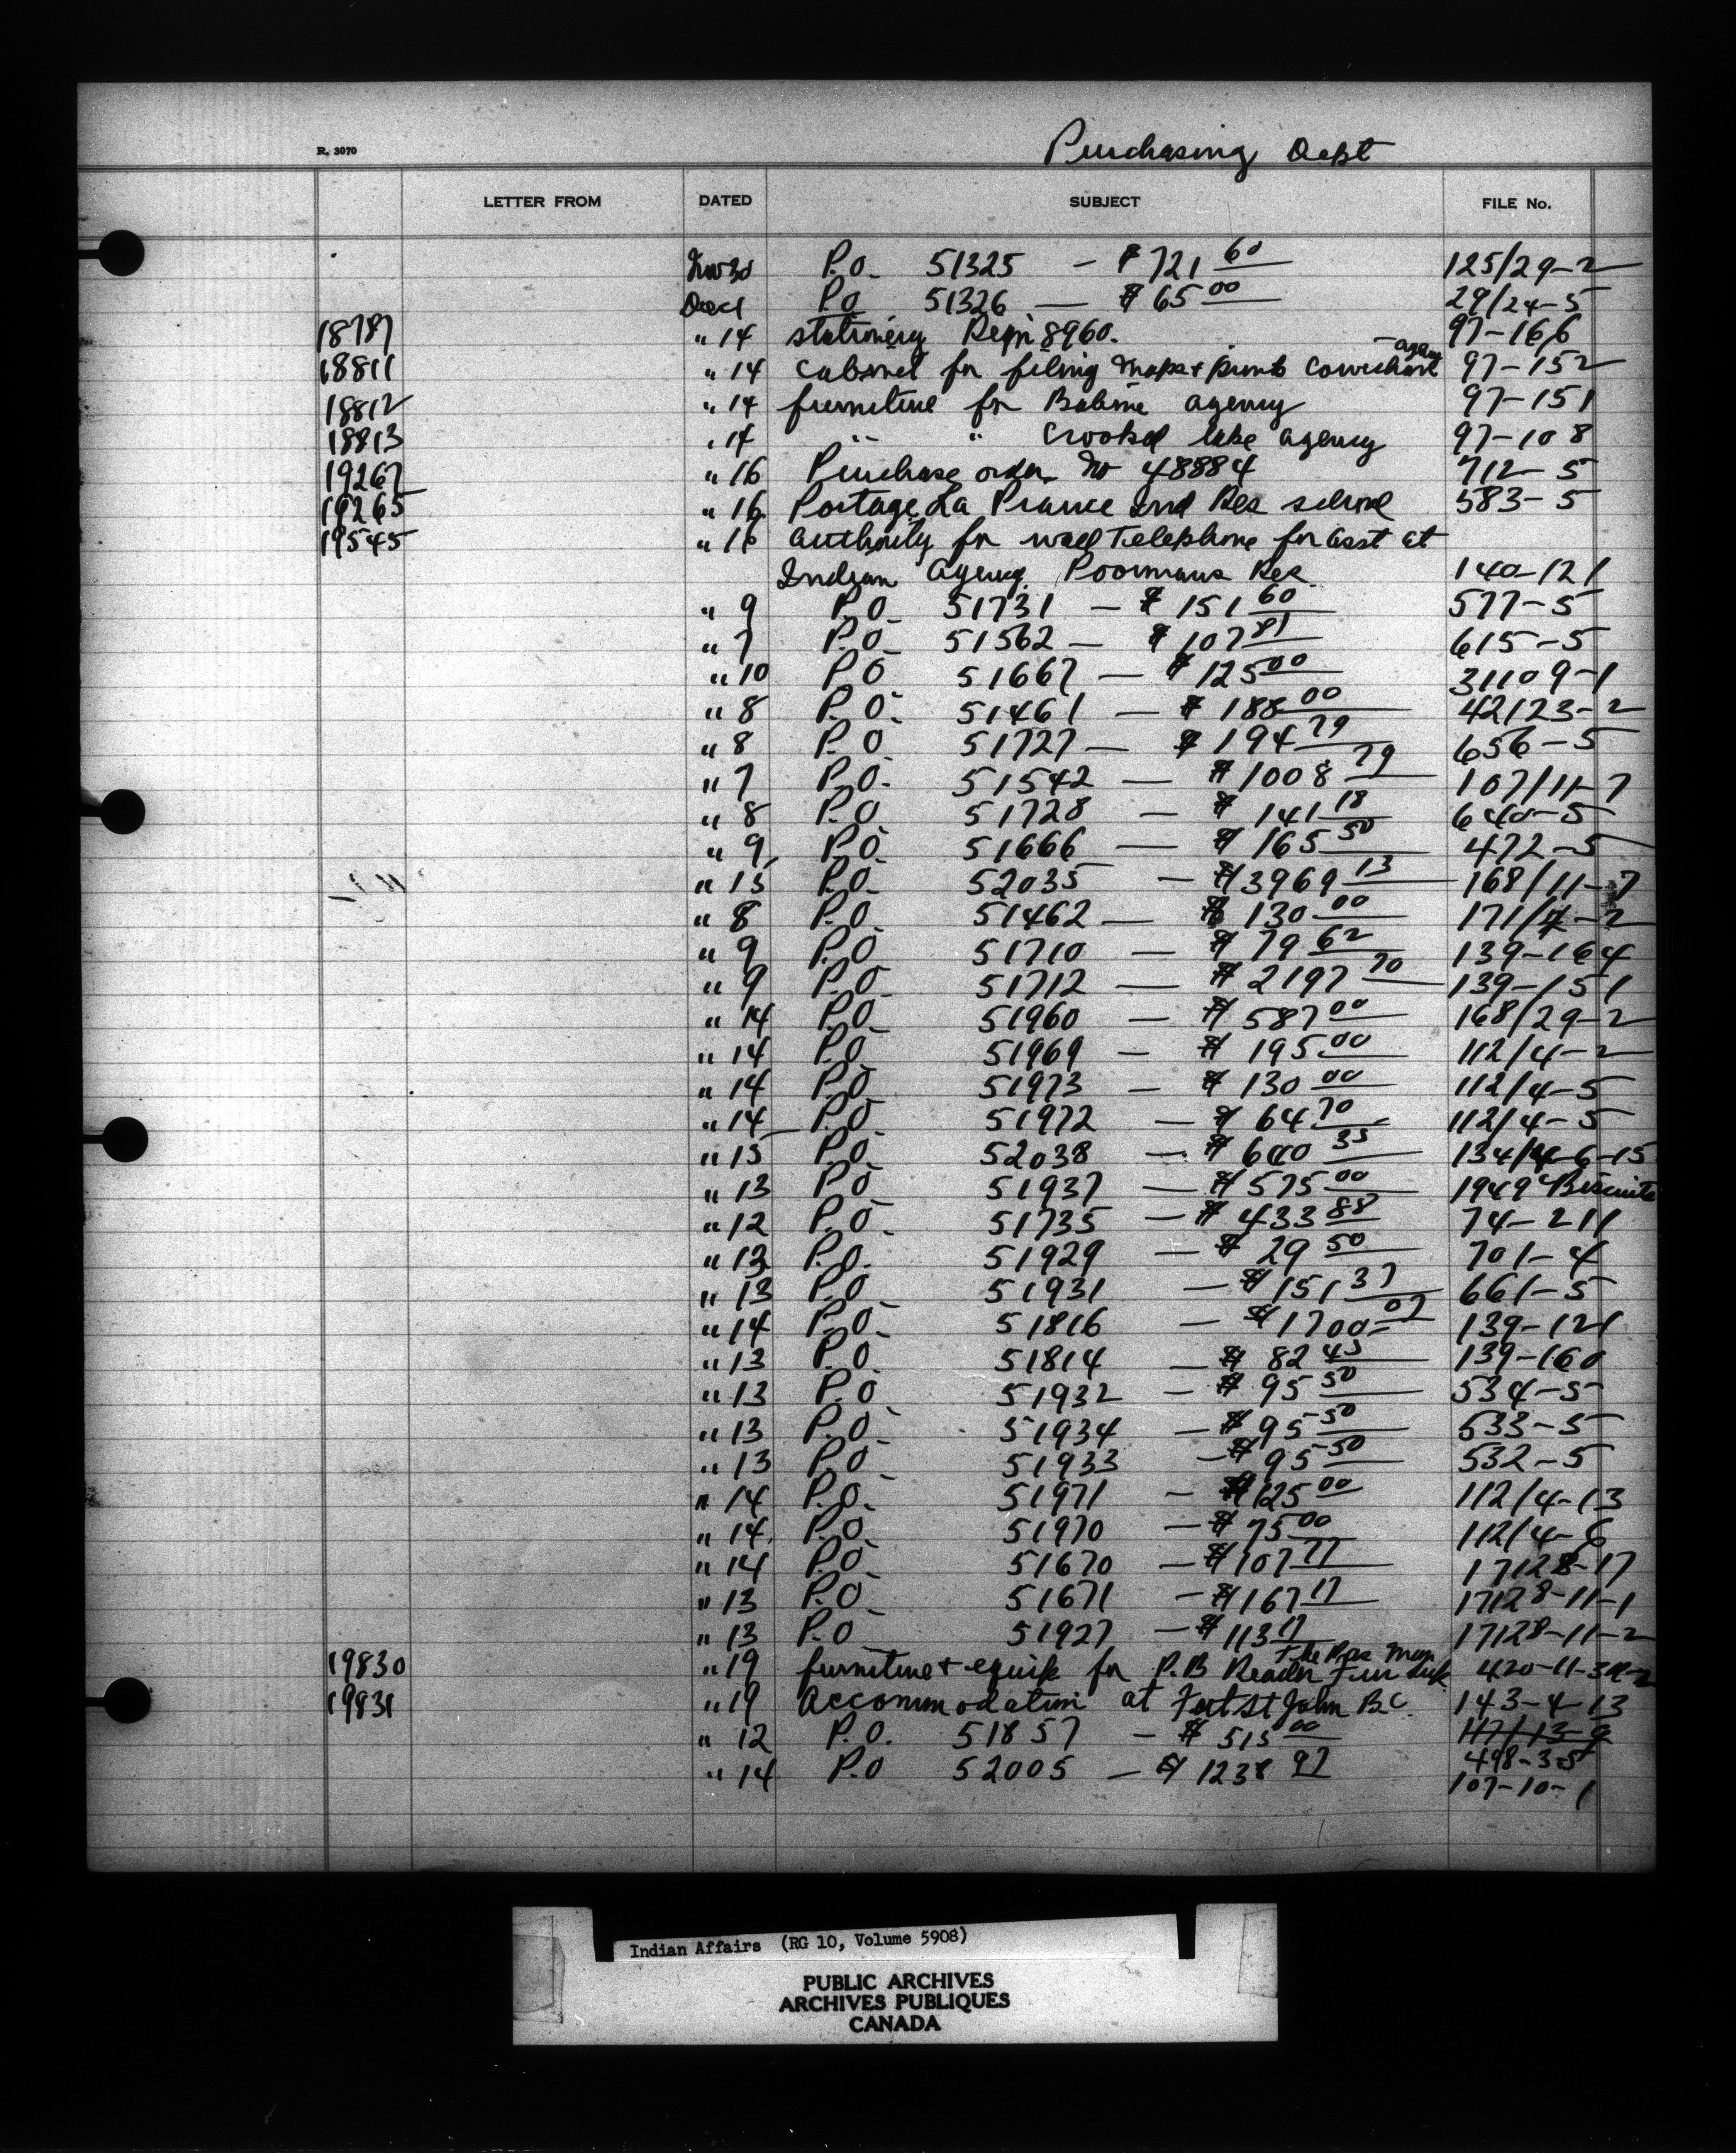 R. 3070
Purchasing Dept
LETTER FROM DATED SUBJECT FILE No.
Nov 30 P.O. 51325 — $721 60 125/29-2
Dec 1 P.O 51326 — $65 00 29/24-5
18787 " 14 stationery Reqn 8960. 97-166
18811 " 14 Cabinet for filing maps & prints Cowichan agency 97-152
18812 " 14 furniture for Babine agency 97-151
18813 " 14 " " Crooked lake agency 97-108
19267 " 16 Purchase order No 48884 712-5
19265 " 16 Portage La Prairie Ind Res school 583-5
19545 " 16 authority for wall Telephone for asst at
Indian Agency Poormans Res. 140-121
" 9 P.O. 51731 — $151 60 577-5
" 7 P.O. 51562 — $107 81 615-5
" 10 P O 51667 — $125 00 31109-1
" 8 P.O. 51461 — $188 00 42123-2
" 8 P.O 51727 — $194 79 656-5
" 7 P.O. 51542 — $1008 79 107/11-7
" 8 P.O 51728 — $141 18 640-5
" 9 P.O. 51666 — $165 50 472-5
" 15 P.O. 52035 — $3969 13 168/11-7
" 8 P.O. 51462 — $130 00 171/4-2
" 9 P.O 51710 — $79 62 139-164
" 9 P.O. 51712 — $2197 70 139-151
" 14 P.O. 51960 — $587 00 168/29-2
" 14 P.O. 51969 — $195 00 112/4-2
" 14 P.O. 51973 — $130 00 112/4-5
" 14 P.O. 51972 — $64 70 112/4-5
" 15 P.O. 52038 — $640 35 134/4-6-15
" 13 P.O 51937 — $575 00 1949 Biscuits
" 12 P.O. 51735 — $433 88 74-211
" 13 P.O. 51929 — $29 50 701-4
" 13 P.O. 51931 — $151 37 661-5
" 14 P.O. 51816 — $1700 07 139-121
" 13 P.O. 51814 — $82 45 139-160
" 13 P.O. 51932 — $95 50 534-5
" 13 P.O. 51934 — $95 50 533-5
" 13 P.O. 51933 — $95 50 532-5
" 14 P.O. 51971 — $125 00 112/4-13
" 14 P.O. 51970 — $75 00 112/4-6
" 14 P.O. 51670 — $107 77 17128-17
" 13 P.O. 51671 — $167 17 17128-11-1
" 13 P.O 51927 — $113 17 17128-11-2
19830 " 19 furniture & equip for P.B Reader Fur The Pas Man 420-11-3
19831 " 19 Accommodation at Fort St John B.C. 143-4-13
" 12 P.O. 51857 — $515 00 117/13-9
498-3-5
" 14 P.O 52005 — $1238 97 107-10-1
Indian Affairs (RG 10, Volume 5908)
PUBLIC ARCHIVES
ARCHIVES PUBLIQUES
CANADA